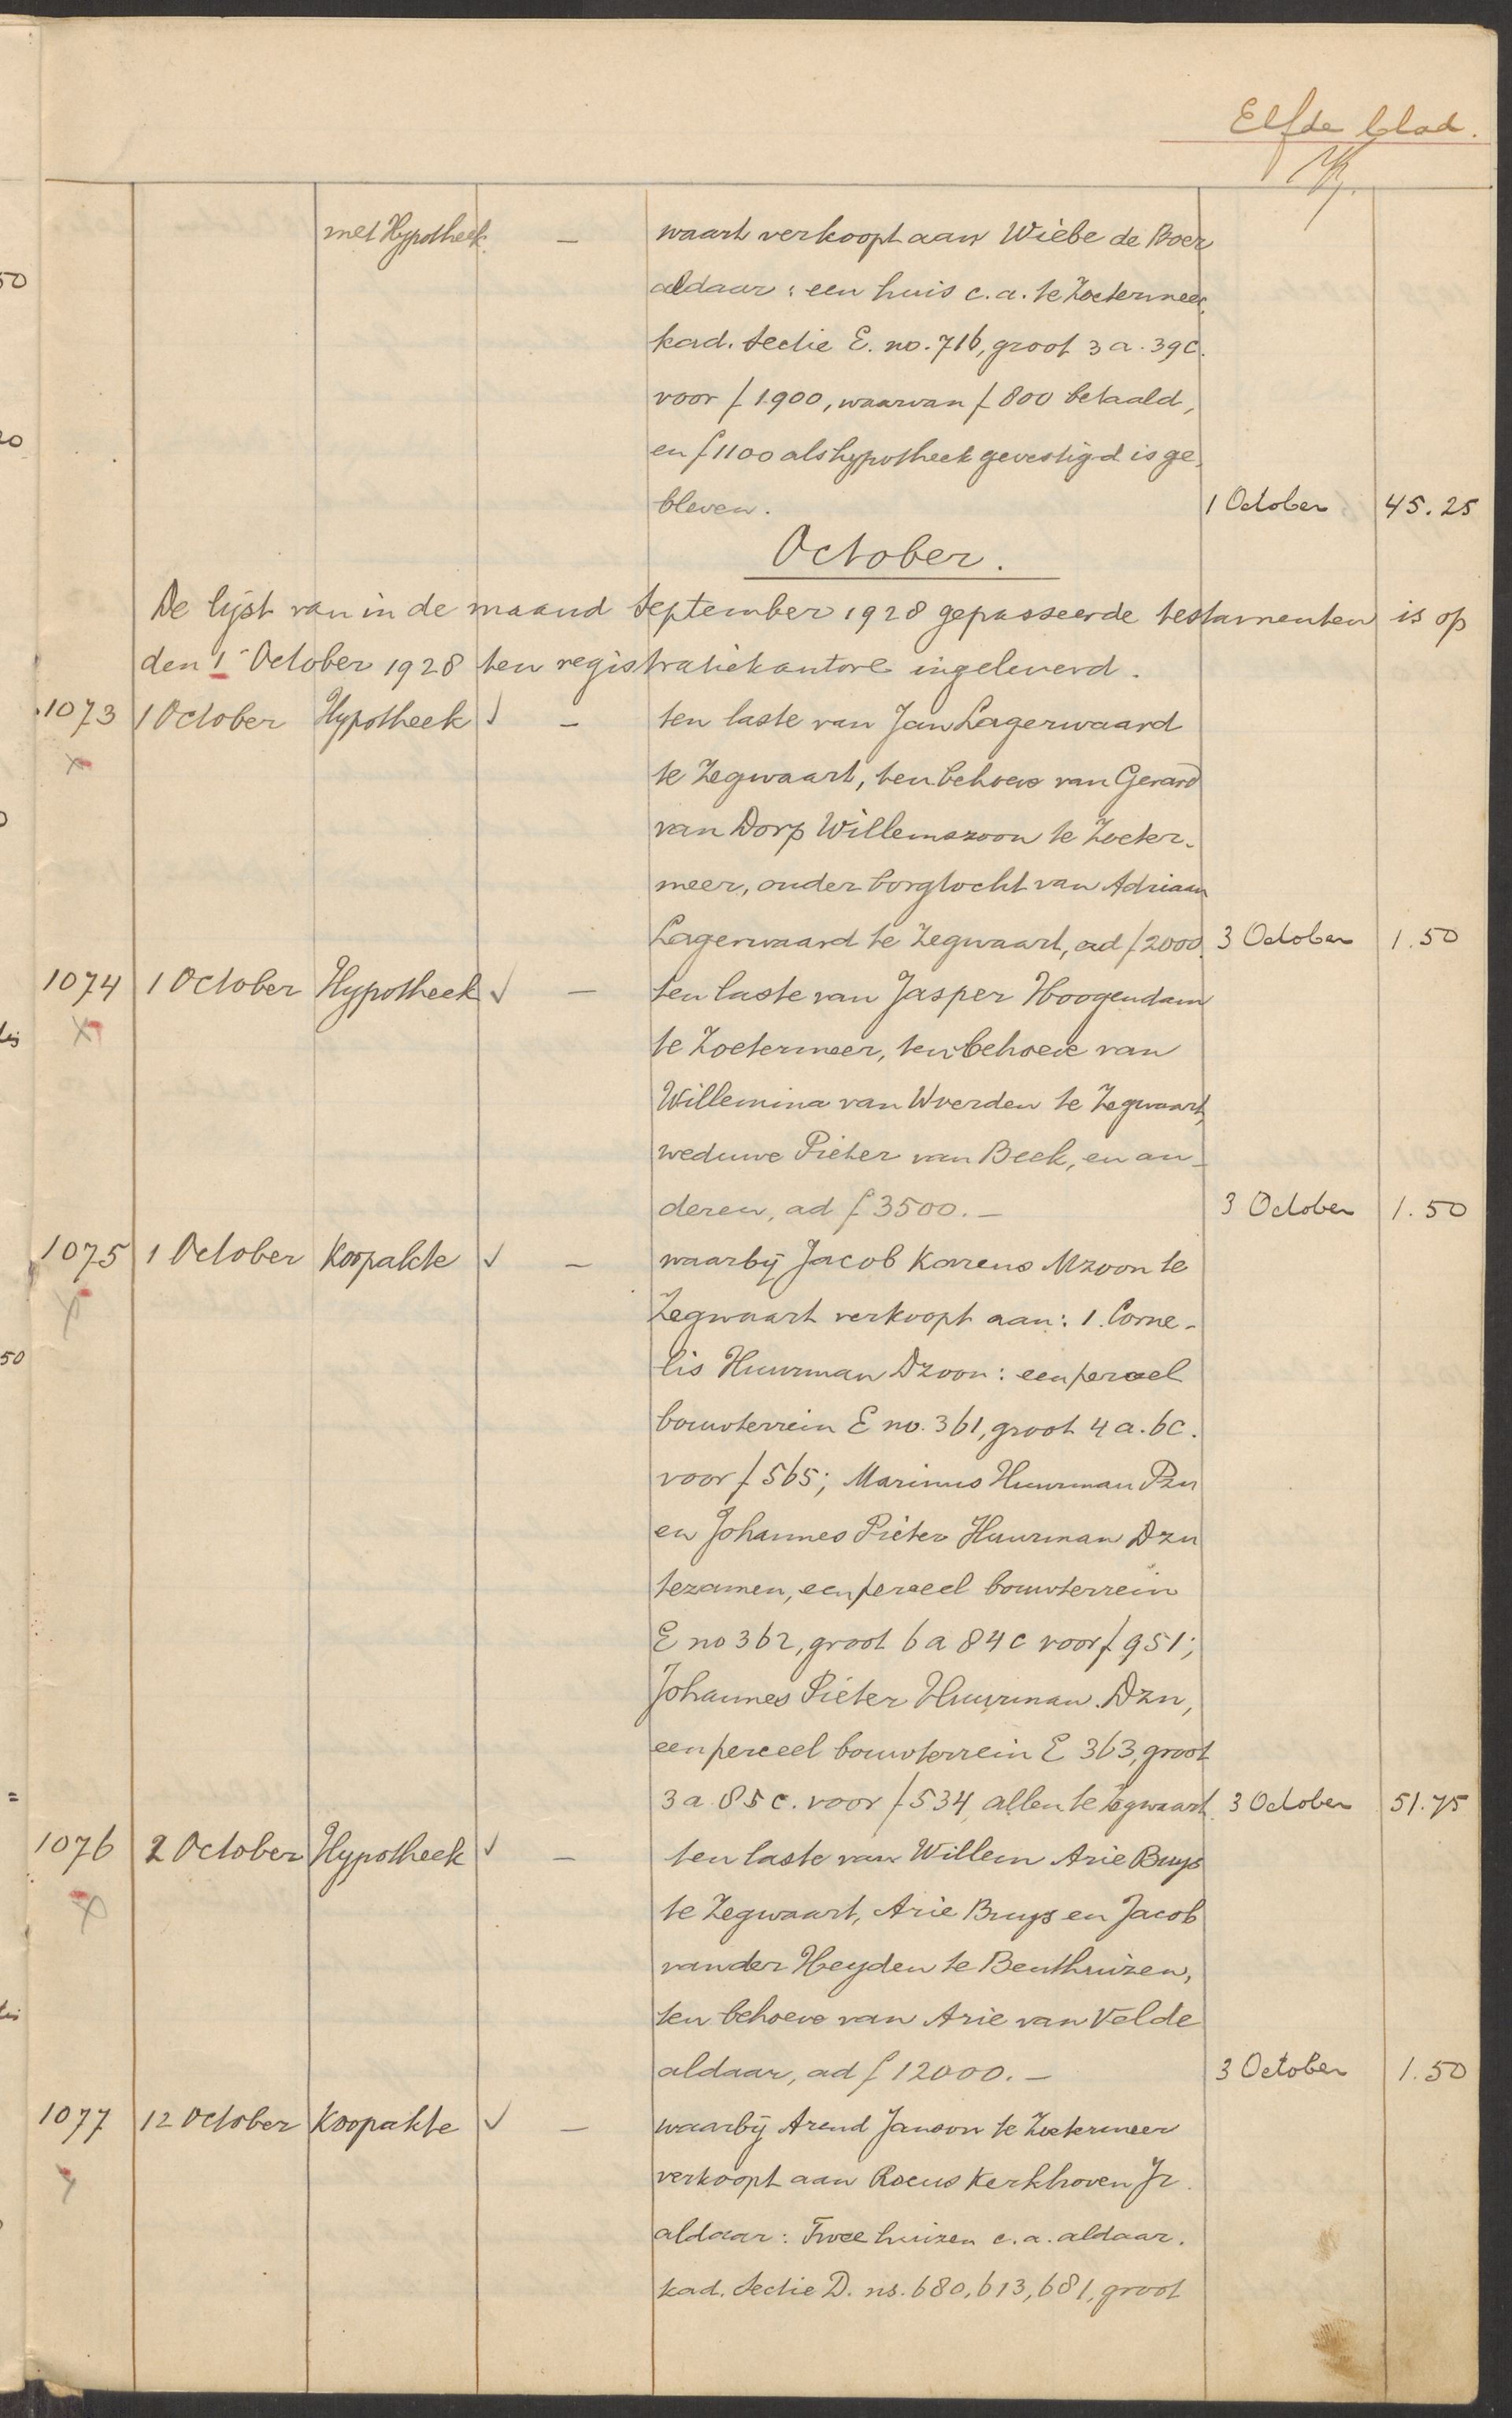 Elfde blad.
met Hypotheek. — waart verkoopt aan Wiebe de Boer
aldaar: een huis c.a. te Zoetermeer,
kad. sectie E. no. 716, groot 3 a. 39 c.
voor f 1900, waarvan f 800 betaald,
en f 1100 als hypotheek gevestigd is ge-
bleven. 1 October 45.25
October.
De lijst van in de maand September 1928 gepasseerde testamenten is op
den 1 October 1928 ten registratiekantore ingeleverd.
1073 1 October Hypotheek √ — ten laste van Jan Lagerwaard
te Zegwaart, ten behoeve van Gerard
van Dorp Willemszoon te Zoeter-
meer, onder borgtocht van Adriaan
Lagerwaard te Zegwaart, ad f 2000. 3 October 1.50
1074 1 October Hypotheek √ — ten laste van Jasper Hoogendam
te Zoetermeer, ten behoeve van
Willemina van Woerden te Zegwaart,
weduwe Pieter van Beek, en an-
deren, ad f 3500.— 3 October 1.50
1075 1 October Koopakte √ — waarbij Jacob Karens Mzoon te
Zegwaart verkoopt aan: 1. Corne-
lis Huurman Dzoon: een perceel
bouwterrein E no. 361, groot 4 a. 6 c.
voor f 565; Marinus Huurman Pzn
en Johannes Pieter Huurman Dzn
tezamen, een perceel bouwterrein
E no 362, groot 6 a 84 c voor f 951;
Johannes Pieter Huurman Dzn,
een perceel bouwterrein E 363, groot
3 a 85 c. voor f 534, allen te Zegwaart. 3 October 51.75
1076 2 October Hypotheek √ — ten laste van Willem Arie Buys
te Zegwaart, Arie Bruys en Jacob
van der Heyden te Benthuizen,
ten behoeve van Arie van Velde
aldaar, ad f 12000.— 3 October 1.50
1077 12 October Koopakte √ — waarbij Arend Janson te Zoetermeer
verkoopt aan Rocus Kerkhoven Jr.
aldaar: Twee huizen c.a. aldaar.
kad. sectie D. ns. 680, 613, 681, groot